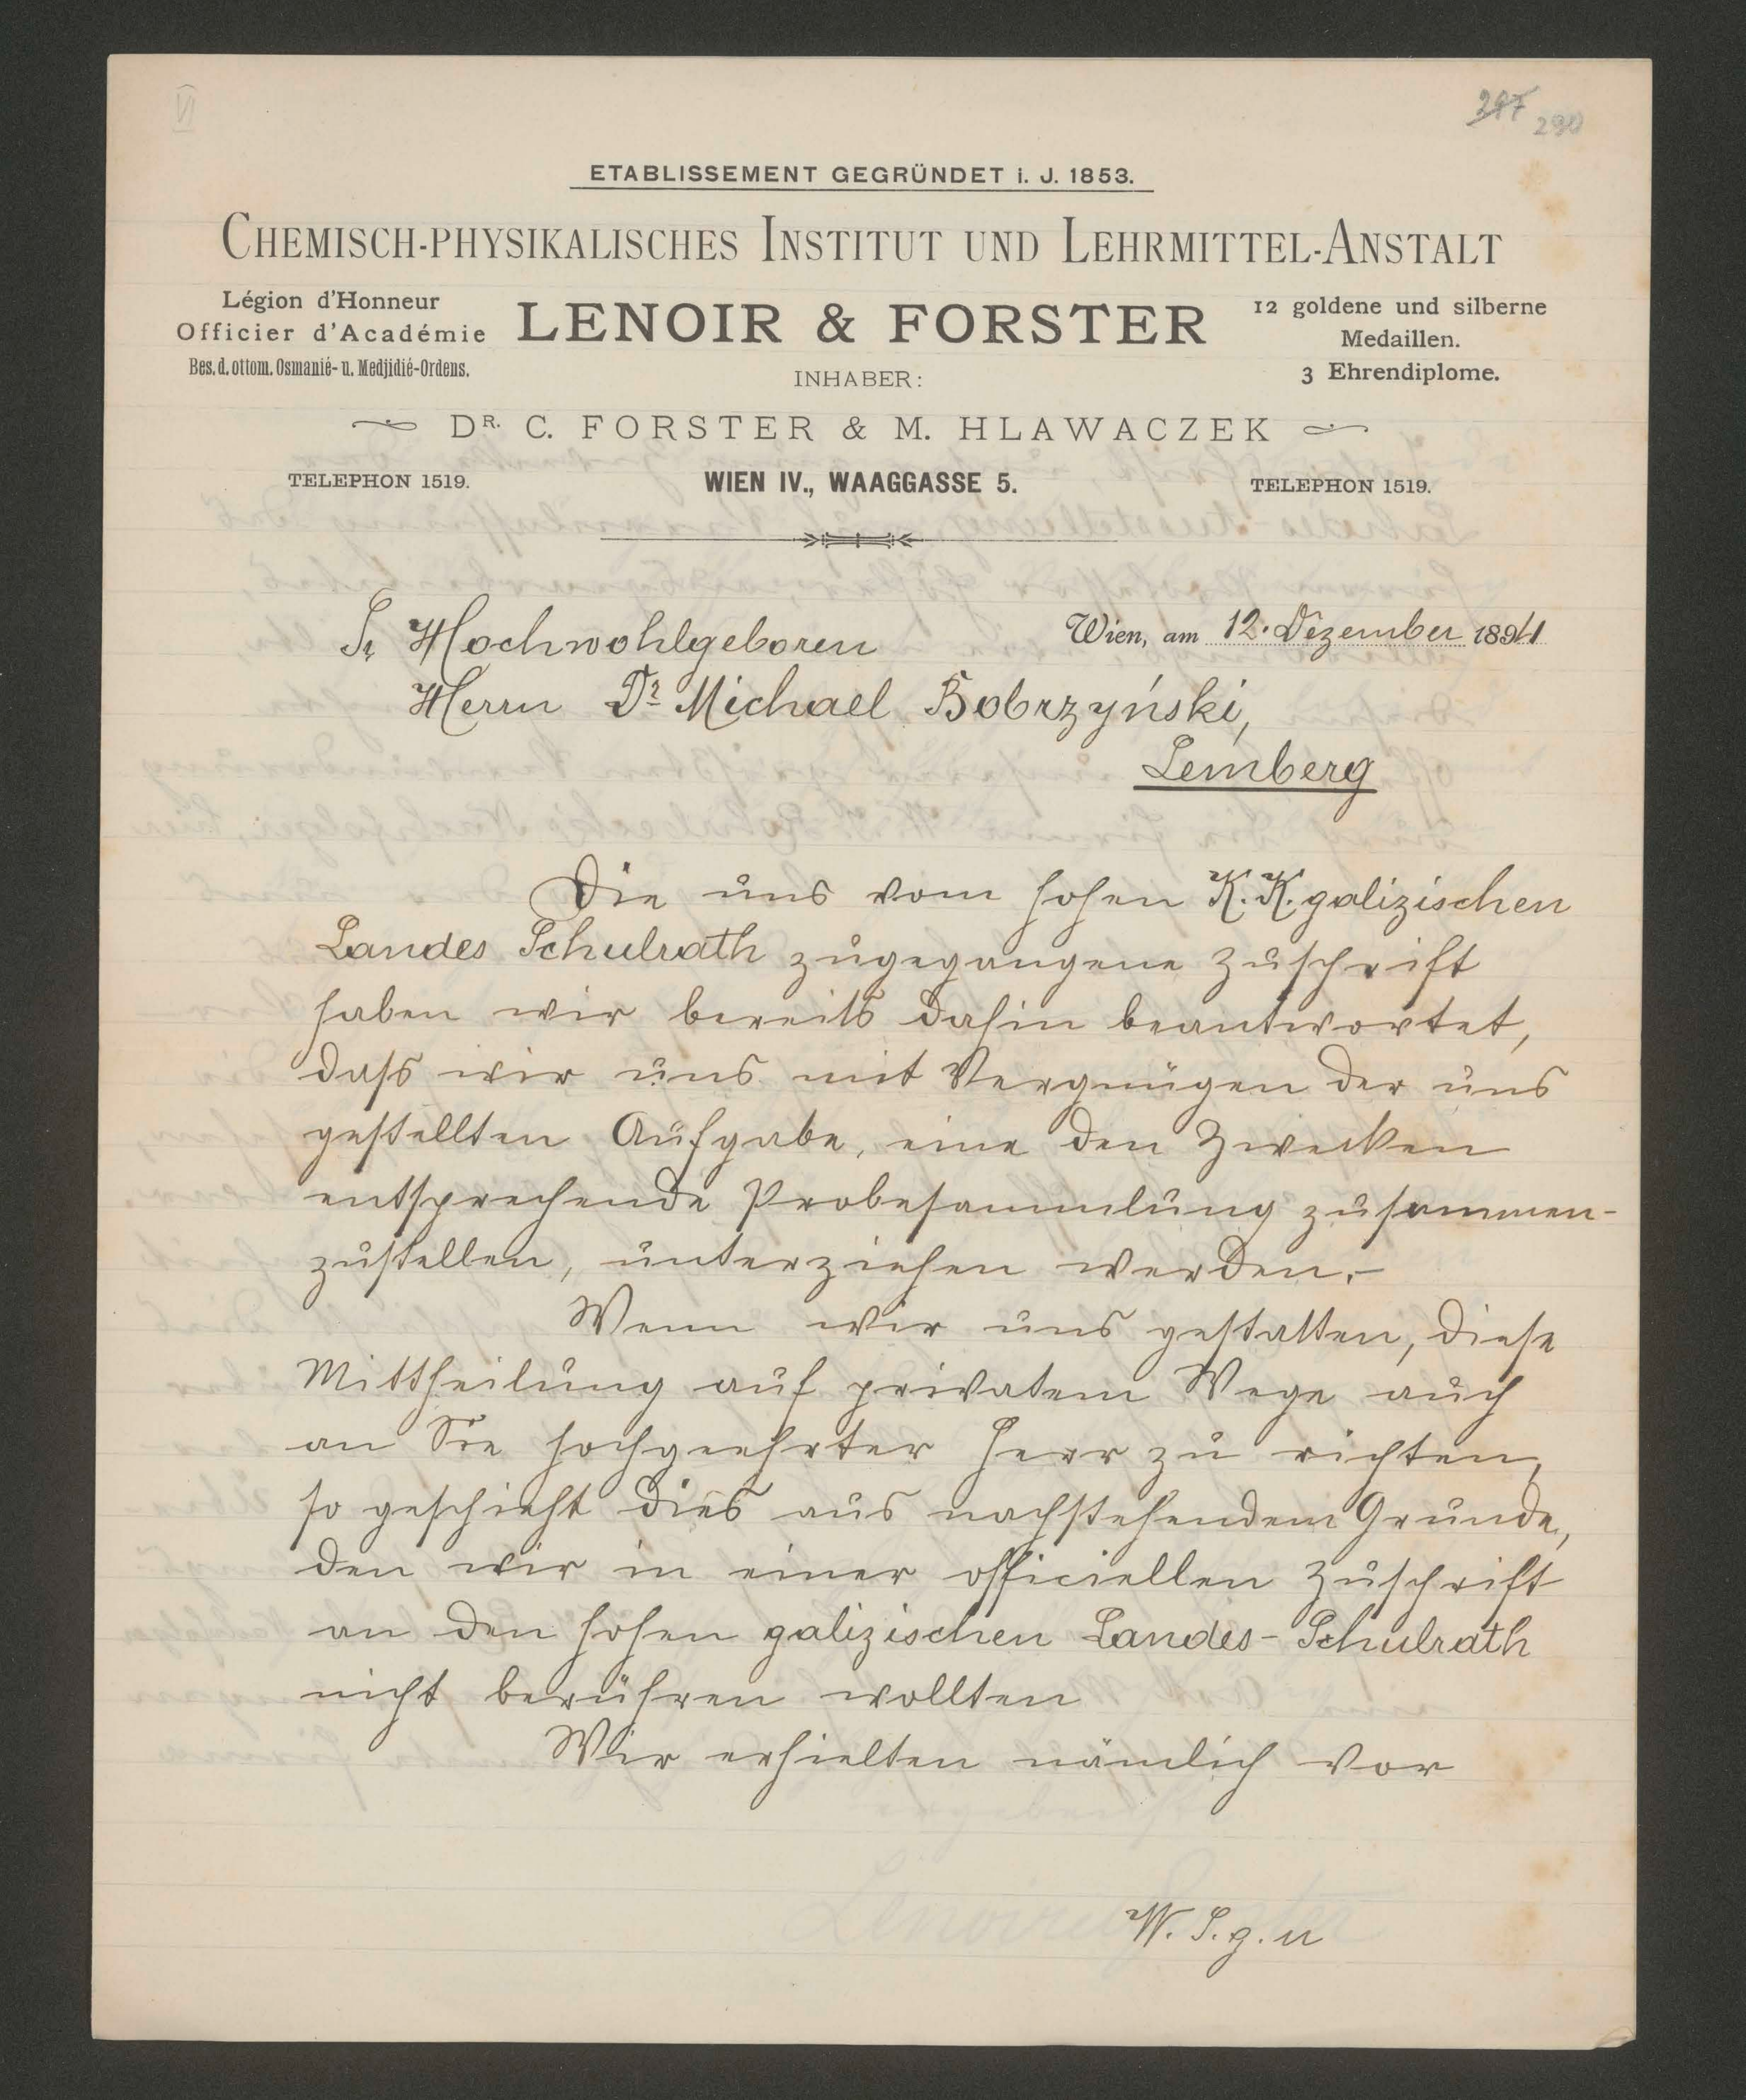 297 290
VI
ETABLISSEMENT GEGRÜNDET i. J. 1853.
CHEMISCH-PHYSIKALISCHES INSTITUT UND LEHRMITTEL-ANSTALT
Légion d'Honneur
Officier d'Académie
Bes. d. ottom. Osmanié- u. Medjidié-Ordens.
LENOIR & FORSTER
12 goldene und silberne
Medaillen.
3 Ehrendiplome.
INHABER:
DR. C. FORSTER & M. HLAWACZEK
TELEPHON 1519.
WIEN IV., WAAGGASSE 5.
TELEPHON 1519.
Wien, am 12. Dezember 1894
Sr Hochwohlgeboren
Herrn Dr Michael Bobrzyński,
Lemberg
Die uns vom hohen K. K. galizischen
Landes Schulrath zugegangene Zuschrift
haben wir bereits dahin beantwortet,
dass wir uns mit Vergnügen der uns
gestellten Aufgabe, eine den Zwecken
entsprechende Probesammlung zusammen-
zustellen, unterziehen werden.-
Wenn wir uns gestatten, diese
Mittheilung auf privatem Wege auch
an Sie hochgeehrter Herr zu richten,
so geschieht dies aus nachstehendem Grunde,
den wir in einer officiellen Zuschrift
an den hohen galizischen Landes-Schulrath
nicht berühren wollten
Wir erhielten nämlich vor
W. S. g. u